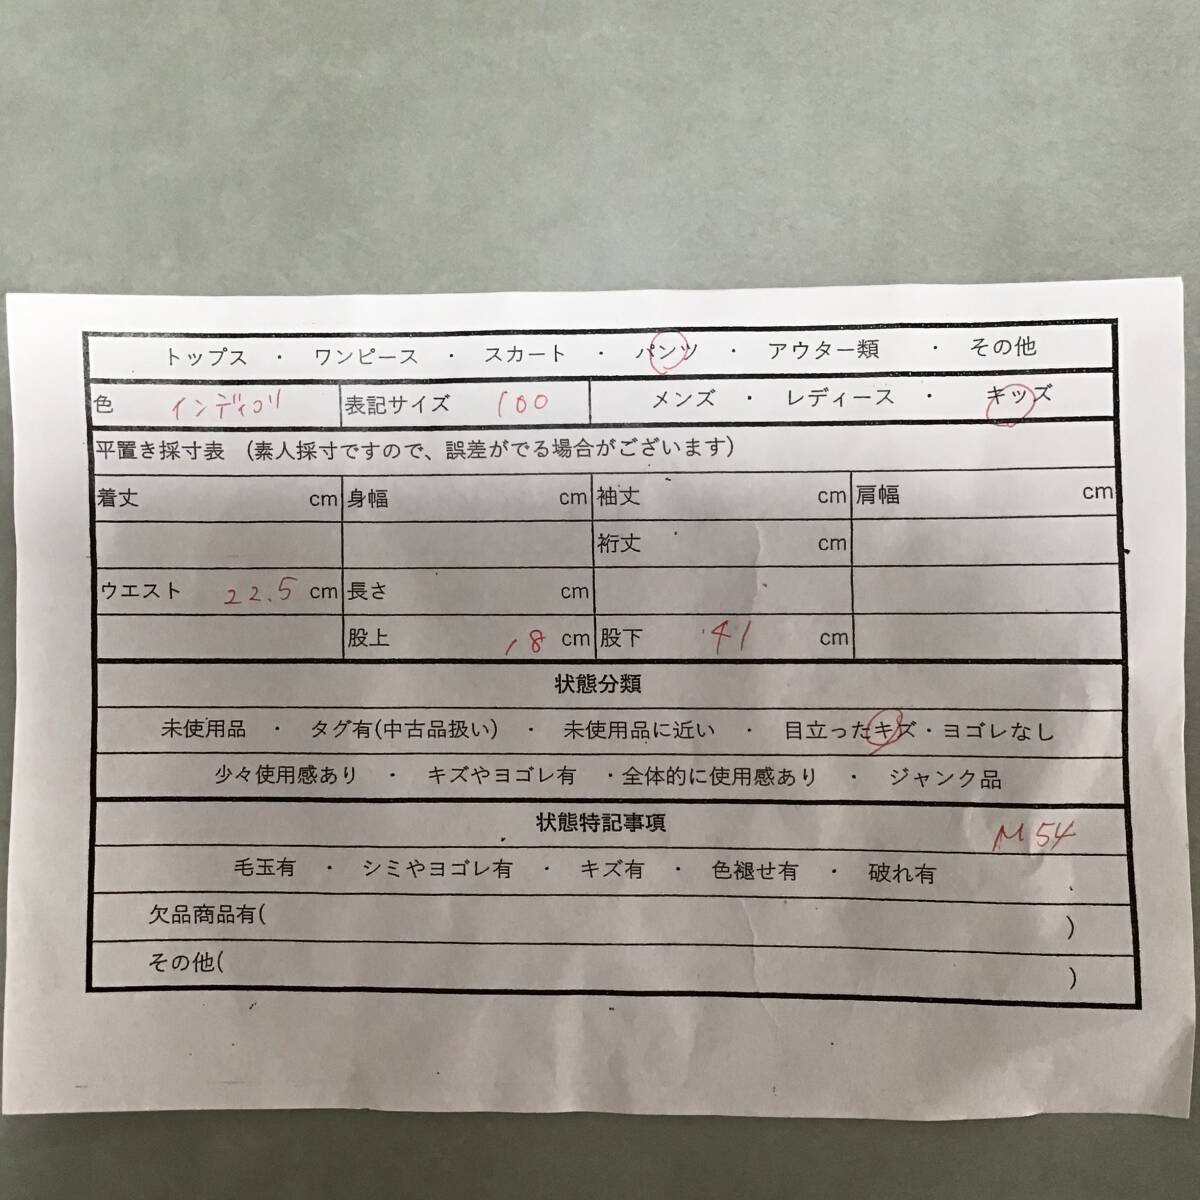 トップス ・ ワンピース ・ スカート ・ パンツ ・ アウター類 ・ その他
色 インディゴ 表記サイズ 100 メンズ ・ レディース ・ キッズ
平置き採寸表 (素人採寸ですので、誤差がでる場合がございます)
着丈 cm 身幅 cm 袖丈 cm 肩幅 cm
裄丈 cm
ウエスト 22.5 cm 長さ cm
股上 18 cm 股下 41 cm
状態分類
未使用品 ・ タグ有(中古品扱い) ・ 未使用品に近い ・ 目立ったキズ・ヨゴレなし
少々使用感あり ・ キズやヨゴレ有 ・全体的に使用感あり ・ ジャンク品
状態特記事項 M54
毛玉有 ・ シミやヨゴレ有 ・ キズ有 ・ 色褪せ有 ・ 破れ有
欠品商品有( )
その他( )